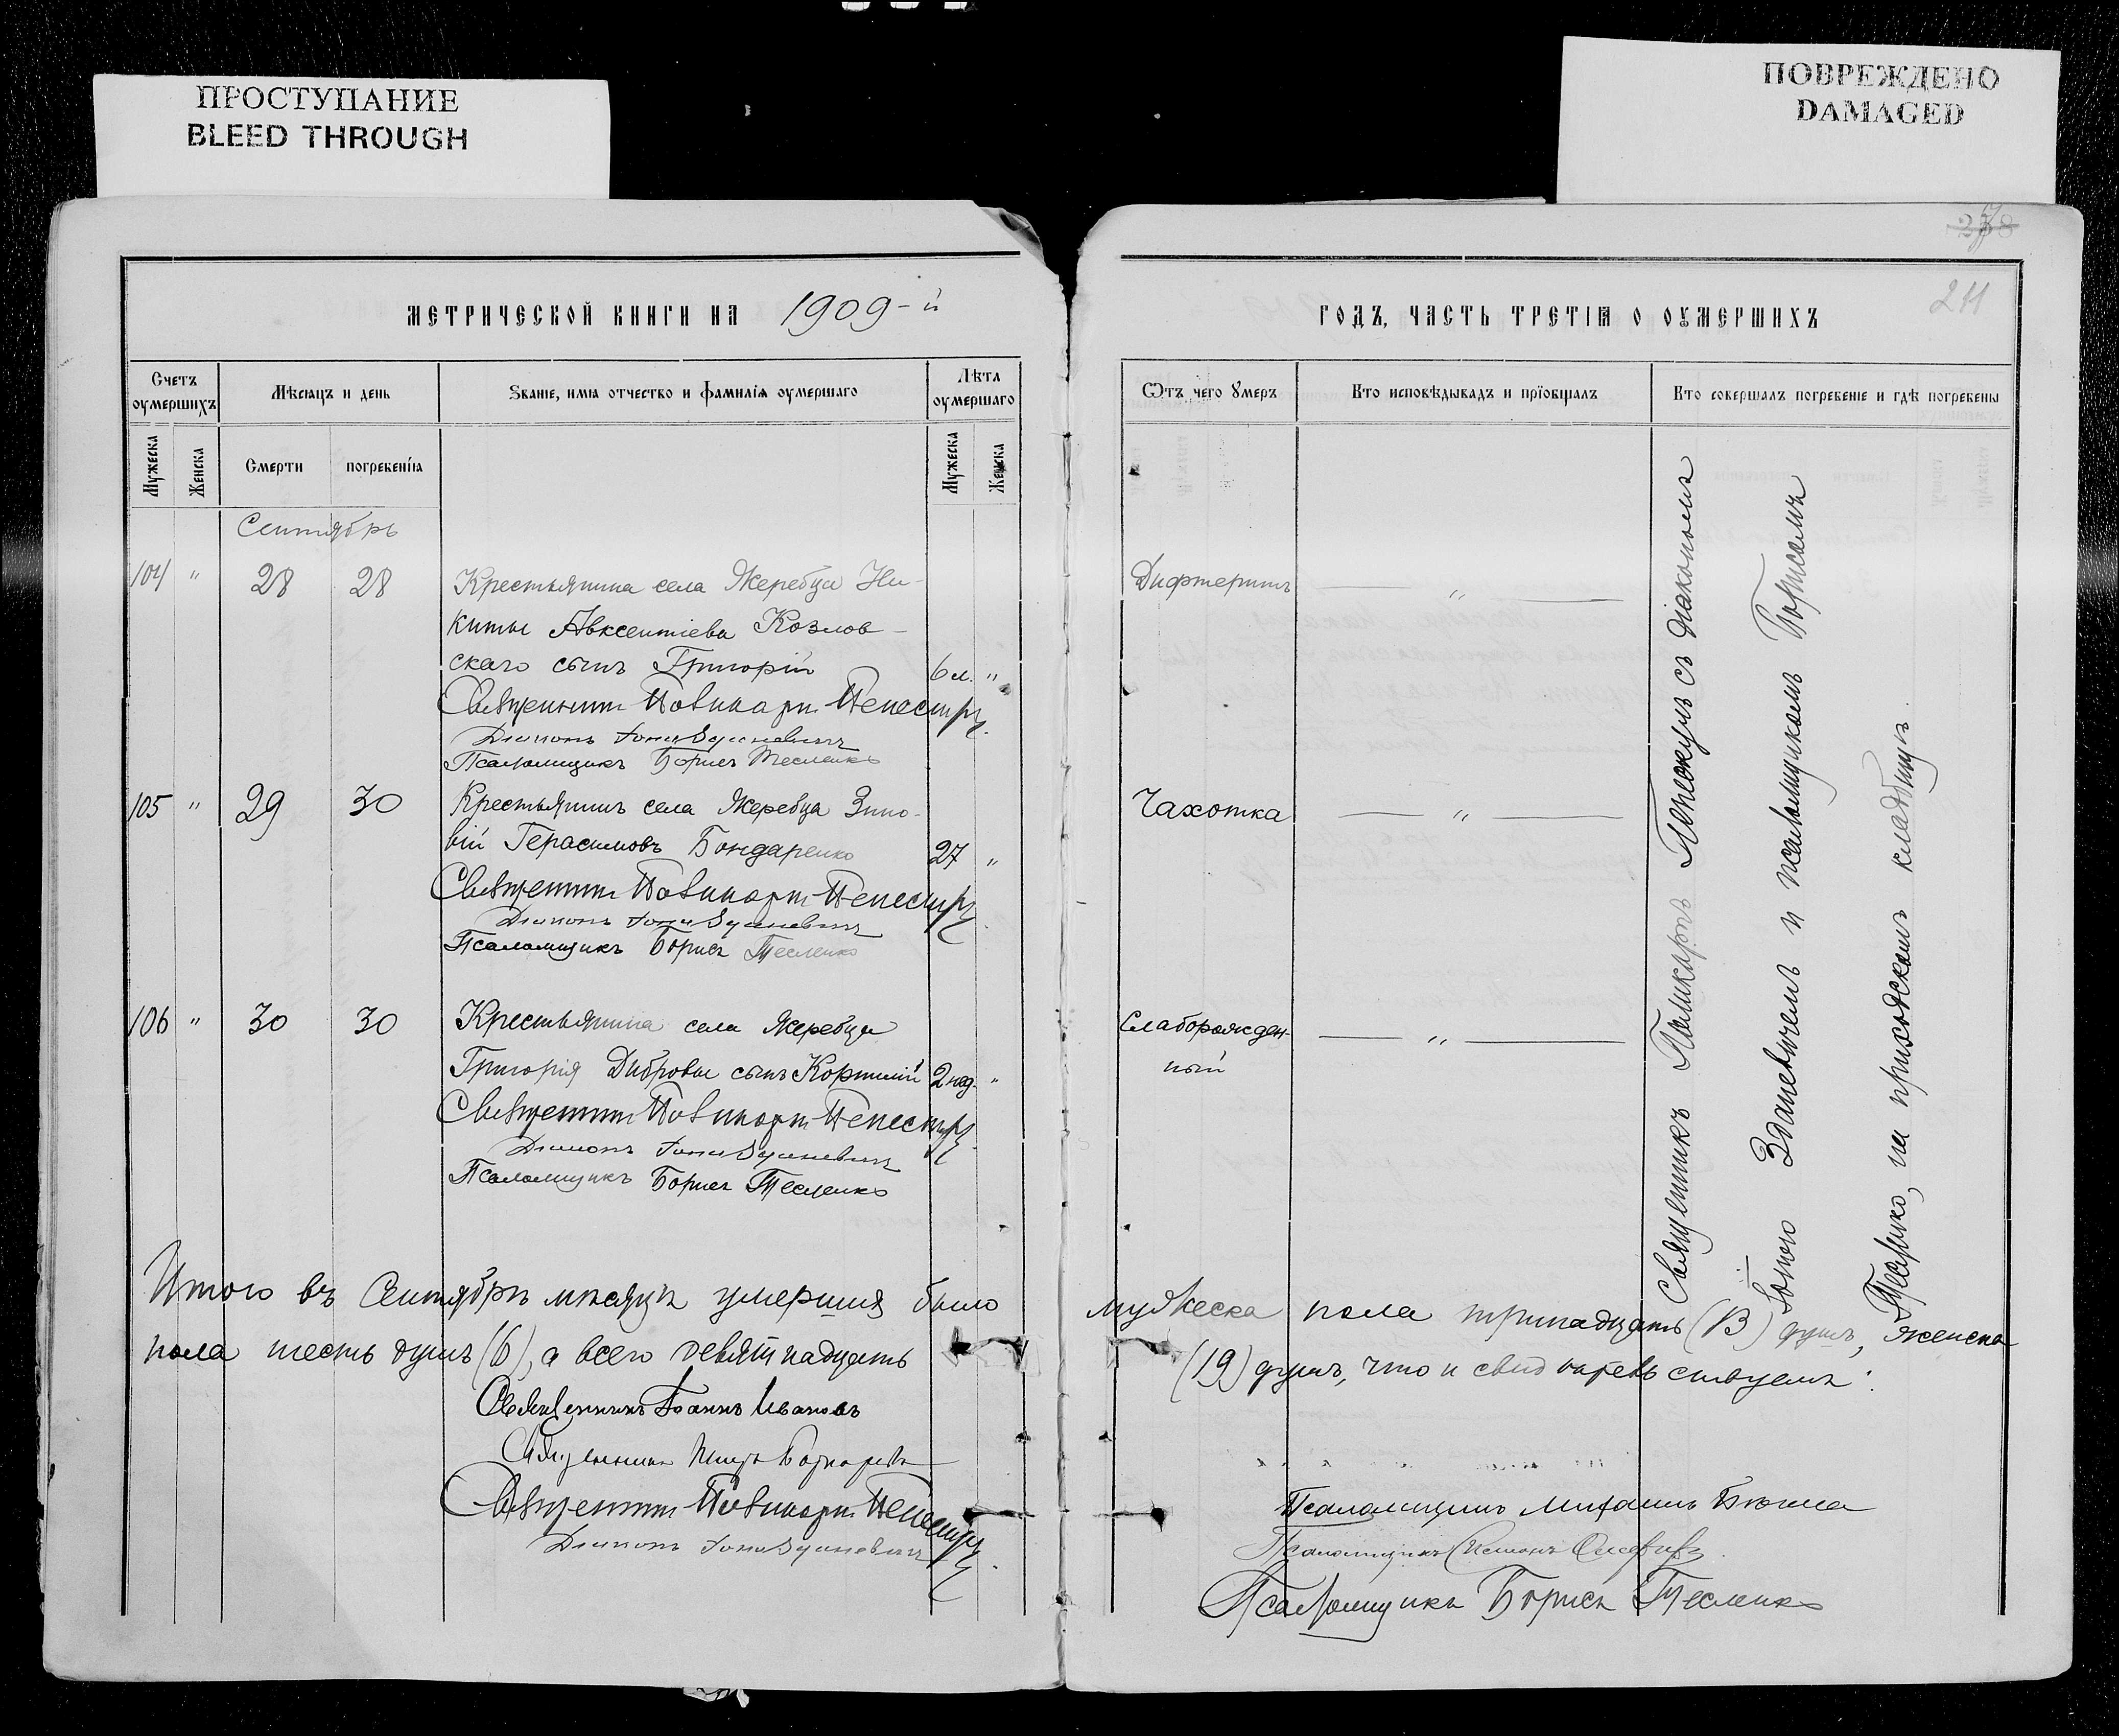 ПРОСТУПАНИЕ
BLEED THROUGH
ПОВРЕЖДЕНО
DAMAGED
238
211
МЕТРИЧЕСКОЙ КНИГИ НА 1909-й
ГОДЪ, ЧАСТЬ ТРЕТІѦ О ОУМЕРШИХЪ
Счетъ оумершихъ
Мѣсяцъ и день
Званіе, имя отчество и фамилія оумершаго
Лѣта оумершаго
Ѿтъ чего Умеръ
Кто исповѣдывадъ и пріобщалъ
Кто совершалъ погребеніе и гдѣ погребены
Мужеска
Женска
Смерти
погребенія
Мужеска
Женска
Сентябрь
104 " 28 28 Крестьянина села Жеребца Ни-
киты Авксентіева Козлов-
скаго сынъ Григорій 6 л. "
Дифтеритъ "
Священникъ Поликарпъ
Діаконъ Іона Зданевичъ
Псаломщикъ Борисъ Тесленко
105 " 29 30 Крестьянинъ села Жеребца Зино-
вій Герасимовъ Бондаренко 27 "
Чахотка "
Священникъ Поликарпъ
Діаконъ Іона Зданевичъ
Псаломщикъ Борисъ Тесленко
106 " 30 30 Крестьянина села Жеребца
Григорія Дибровы сынъ Корнилій 2 нед. "
Слаборожден-
ный "
Священникъ Поликарпъ
Діаконъ Іона Зданевичъ
Псаломщикъ Борисъ Тесленко
Священникъ Поликарпъ с діакономъ
Іоною Зданевичемъ и псаломщикомъ Борисомъ
Тесленко, на приходскомъ кладбищѣ.
Итого въ Сентябрѣ мѣсяцѣ умершихъ было мужеска пола тринадцать (13) душъ, женска
пола шесть душъ (6), а всего девятнадцать (19) душъ, что и свидѣтельствуемъ:
Священникъ Іоаннъ Ивановъ
Священникъ
Священникъ Поликарпъ
Діаконъ Іона Зданевичъ
Псаломщикъ Михаилъ
Псаломщикъ
Псаломщикъ Борисъ Тесленко